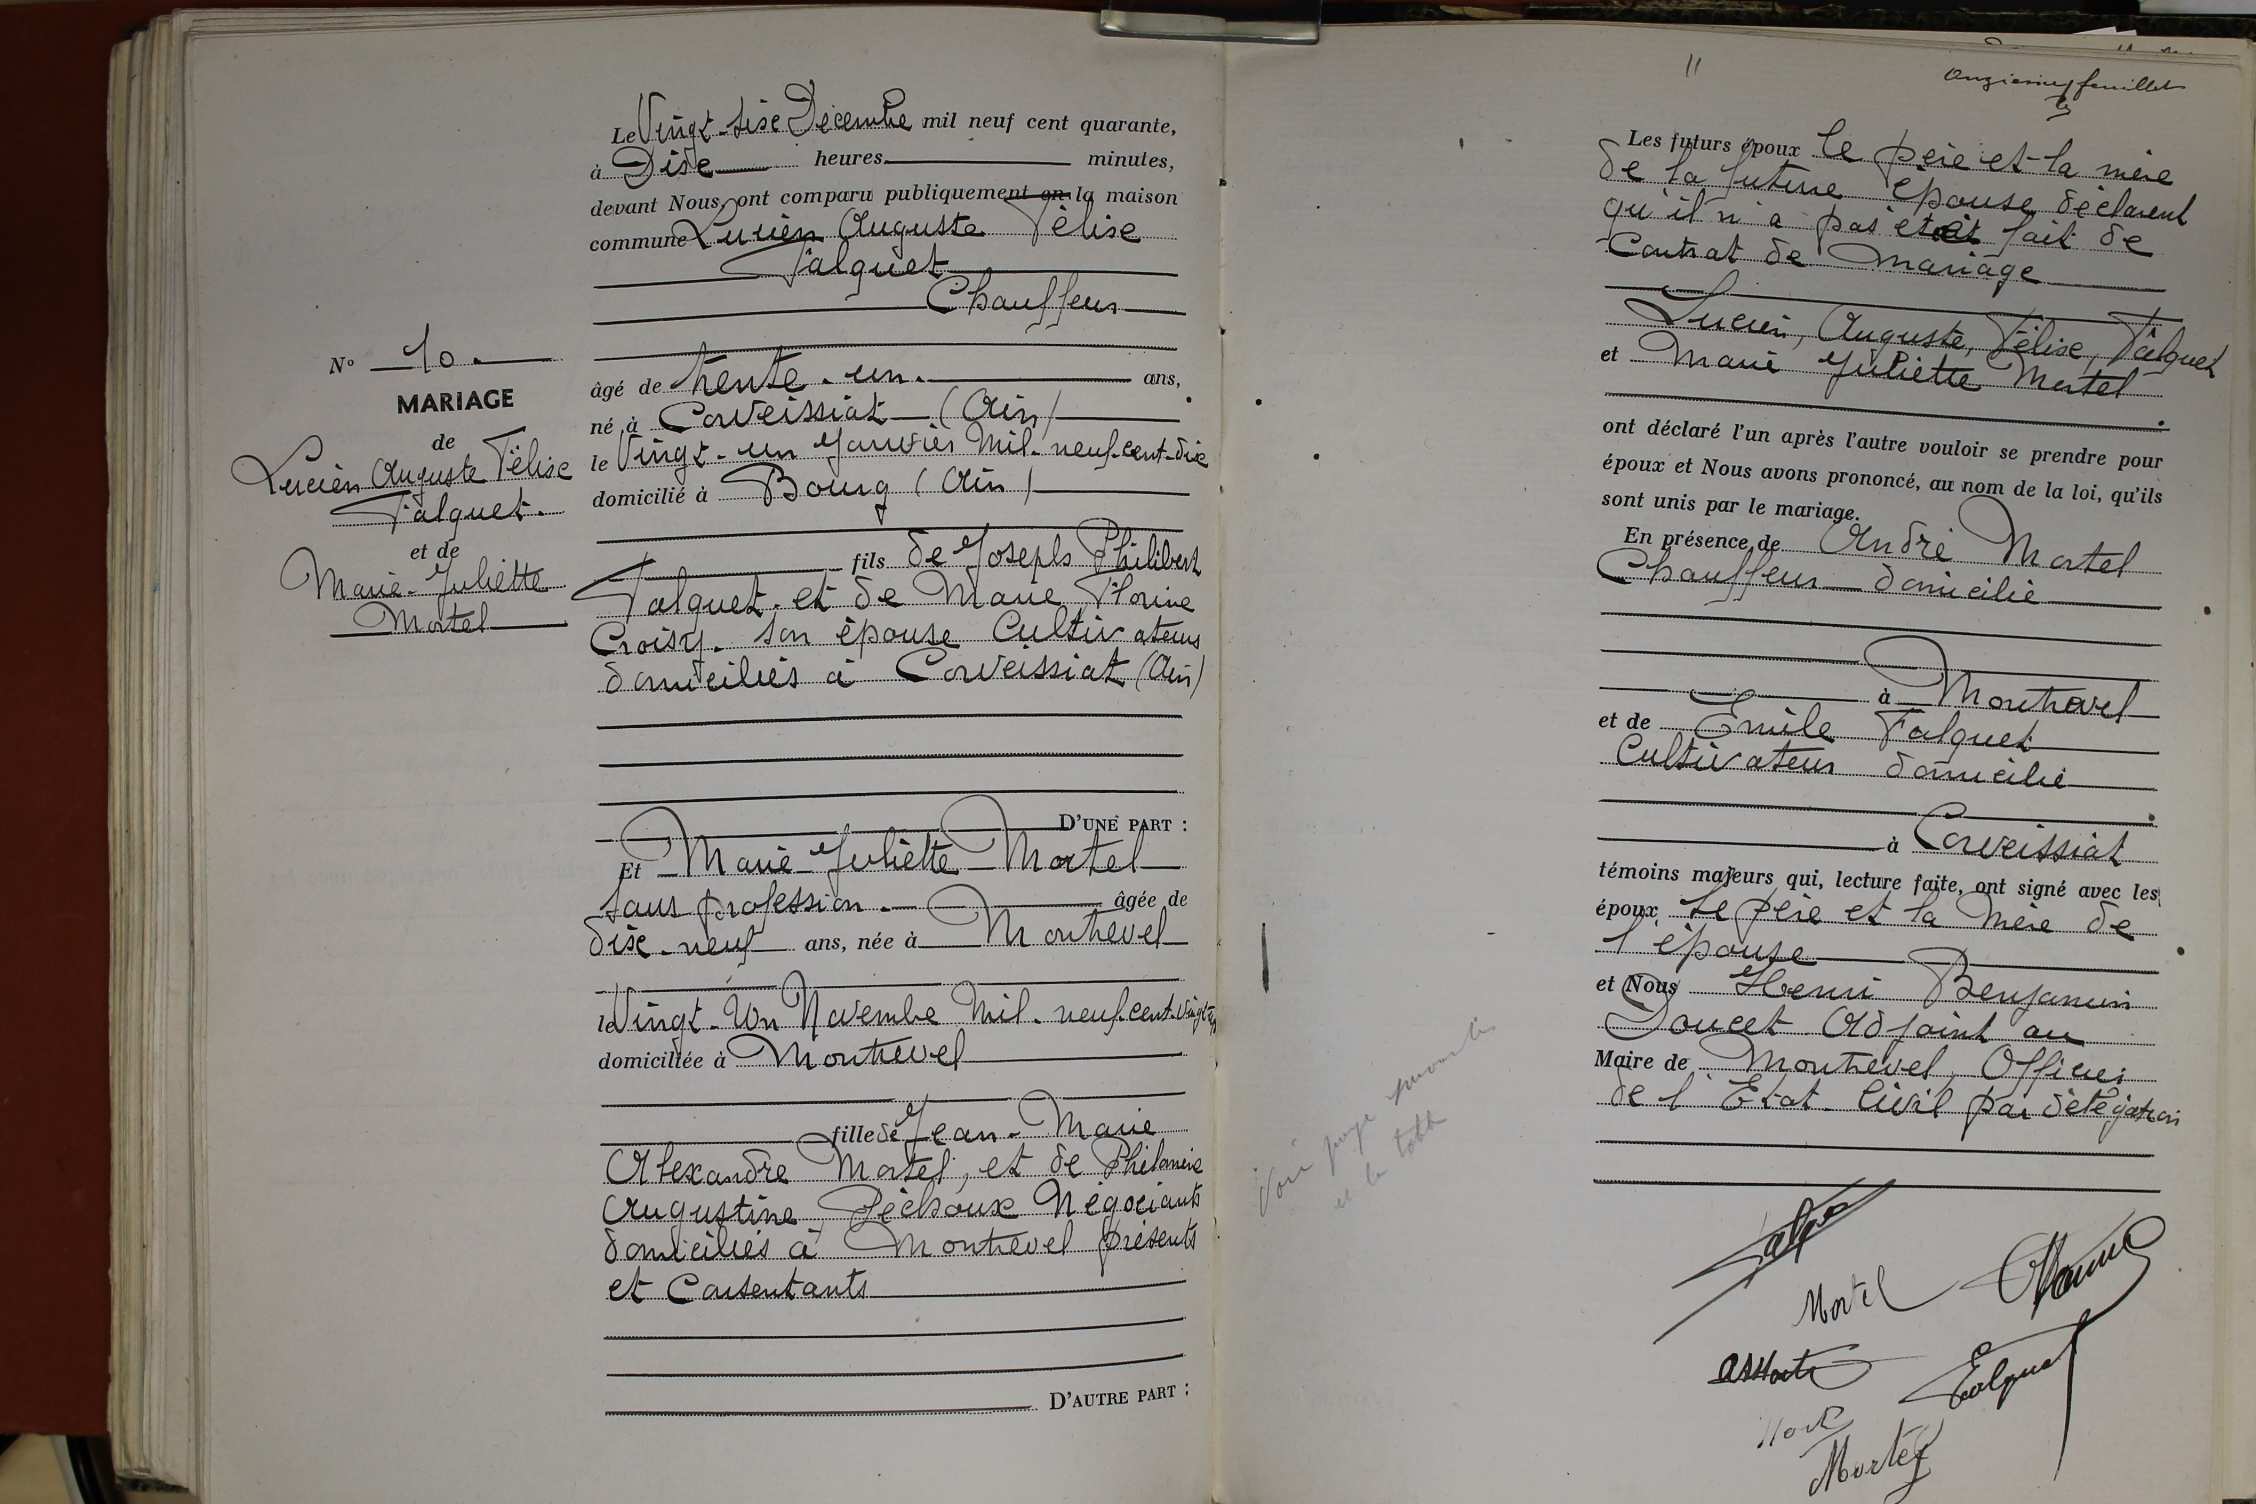 Le Vingt-six Décembre mil neuf cent quarante,
à Dix heures minutes,
devant Nous, ont comparu publiquement en la maison
commune Lucien Auguste Félix
Falquet
Chauffeur
âgé de trente-un. ans,
né à Corveissiat (Ain)
le Vingt-un Janvier Mil-neuf-cent-dix
domicilié à Bourg (Ain)
fils de Joseph Philibert
Falquet et de Marie Florine
Croisy. son épouse Cultivateurs
domiciliés à Corveissiat (Ain)
D'UNE PART :
Et Marie-Juliette Mortel
sans profession. âgée de
dix-neuf ans, née à Montrevel
le Vingt-Un Novembre Mil-neuf-cent-vingt-un
domiciliée à Montrevel
fille de Jean-Marie
Alexandre Mortel, et de Philomène
Augustine Péchoux Négociants
domiciliés à Montrevel présents
et Consentants
D'AUTRE PART :
N° 10.
MARIAGE
de
Lucien Auguste Félix
Falquet.
et de
Marie-Juliette
Mortel
11
onzième feuillet
Les futurs époux le père et la mère
de la future épouse déclarent
qu'il n'a pas été fait de
Contrat de Mariage
Lucien, Auguste, Félix, Falquet
et Marie Juliette Mortel
ont déclaré l'un après l'autre vouloir se prendre pour
époux et Nous avons prononcé, au nom de la loi, qu'ils
sont unis par le mariage.
En présence de André Mortel
Chauffeur domicilié
à Montrevel
et de Emile Falquet
Cultivateur domicilié
à Corveissiat
témoins majeurs qui, lecture faite, ont signé avec les
époux, le père et la mère de
l'épouse
et Nous Henri Benjamin
Doucet Adjoint au
Maire de Montrevel, Officier
de l'Etat-Civil par délégation
Voir page
et la table
Mortel
Falquet
Mortel